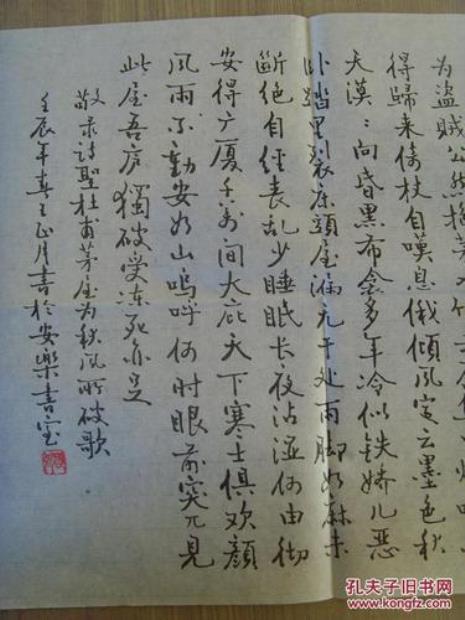 为盗贼公然抱茅入竹去
得歸来倚杖自嘆息俄傾風定云墨色秋
天漠:向昏黑布衾多年冷似铁嬌儿恶
卧踏里裂床頭屋漏无干处雨脚如麻未
斷绝自經丧乱少睡眠长夜沾湿何由彻
安得广厦千万间大庇天下寒士俱欢顔
风雨不動安如山嗚呼何时眼前突兀見
此屋吾庐獨破受冻死亦足
敬录詩聖杜甫茅屋为秋风所破歌
壬辰年春王正月書於安樂書室
孔夫子旧书网